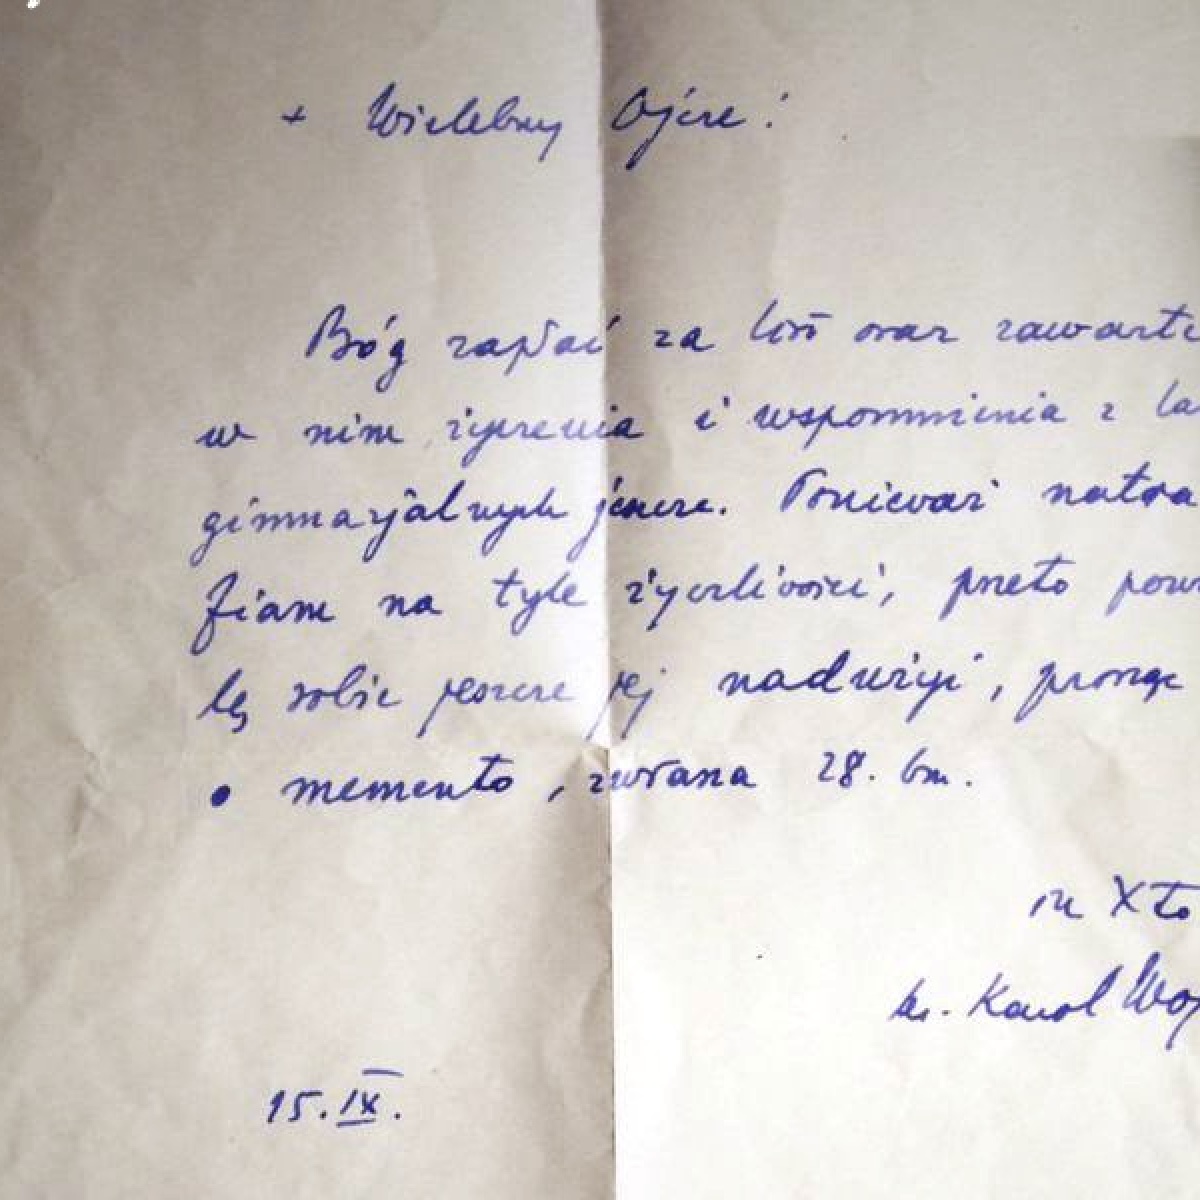 + Wielebny Ojcze!
Bóg zapłać za list oraz zawarte
w nim życzenia i wspomnienia z la
gimnazjalnych jeszcze. Ponieważ natra
fiam na tyle życzliwości, przeto pozwo
lę sobie jeszcze jej nadużyć, prosząc
o memento, zwłaszcza 28. bm.
in Xto
ks. Karol Woj
15.IX.